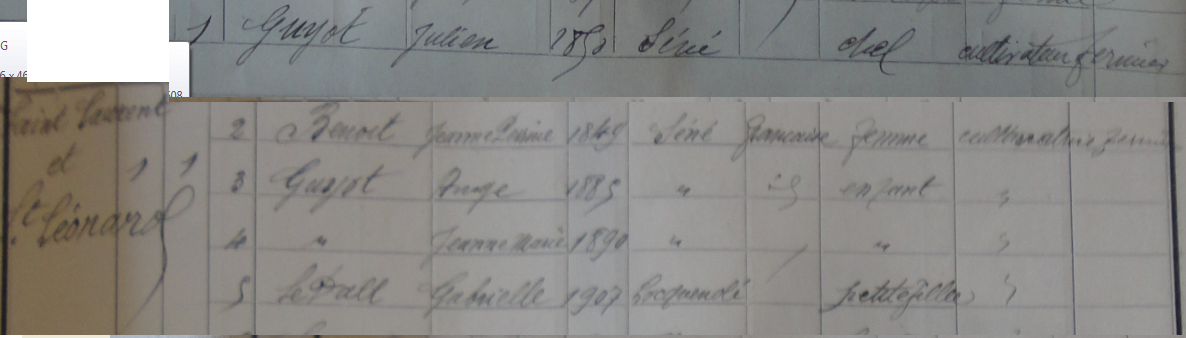 G
6 x 46
508
1 Guyot Julien 1850 Séné / chef cultivateur fermier
Saint Laurent
2 Benoit Jeanne 1849 Séné française femme
et 1 1
3 Guyot Ange 1885 " enfant "
St Léonard
4 " Jeanne Marie 1890 " "
5 Le Dall Gabrielle 1907 petite fille